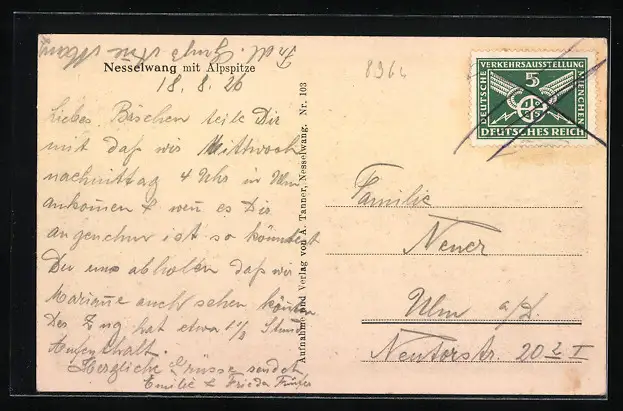 Nesselwang mit Alpspitze
18. 8. 26
Liebes Bäschen teile Dir
mit daß wir Mittwoch
nachmittag 4 Uhr in Ulm
ankomen & wen es Dir
angenehm ist so könntest
Du uns abholen daß wir
Mariane auch sehen können
Der Zug hat etwa 1½ Stunde
Aufenthalt.
Herzliche Grüsse sendet
Emilie & Frieda
Aufnahme und Verlag von A. Tanner, Nesselwang. Nr. 103
8964
DEUTSCHE VERKEHRSAUSSTELLUNG MÜNCHEN
5
DEUTSCHES REICH
Familie
Neuer
Ulm a/D.
Neutorstr. 20 I